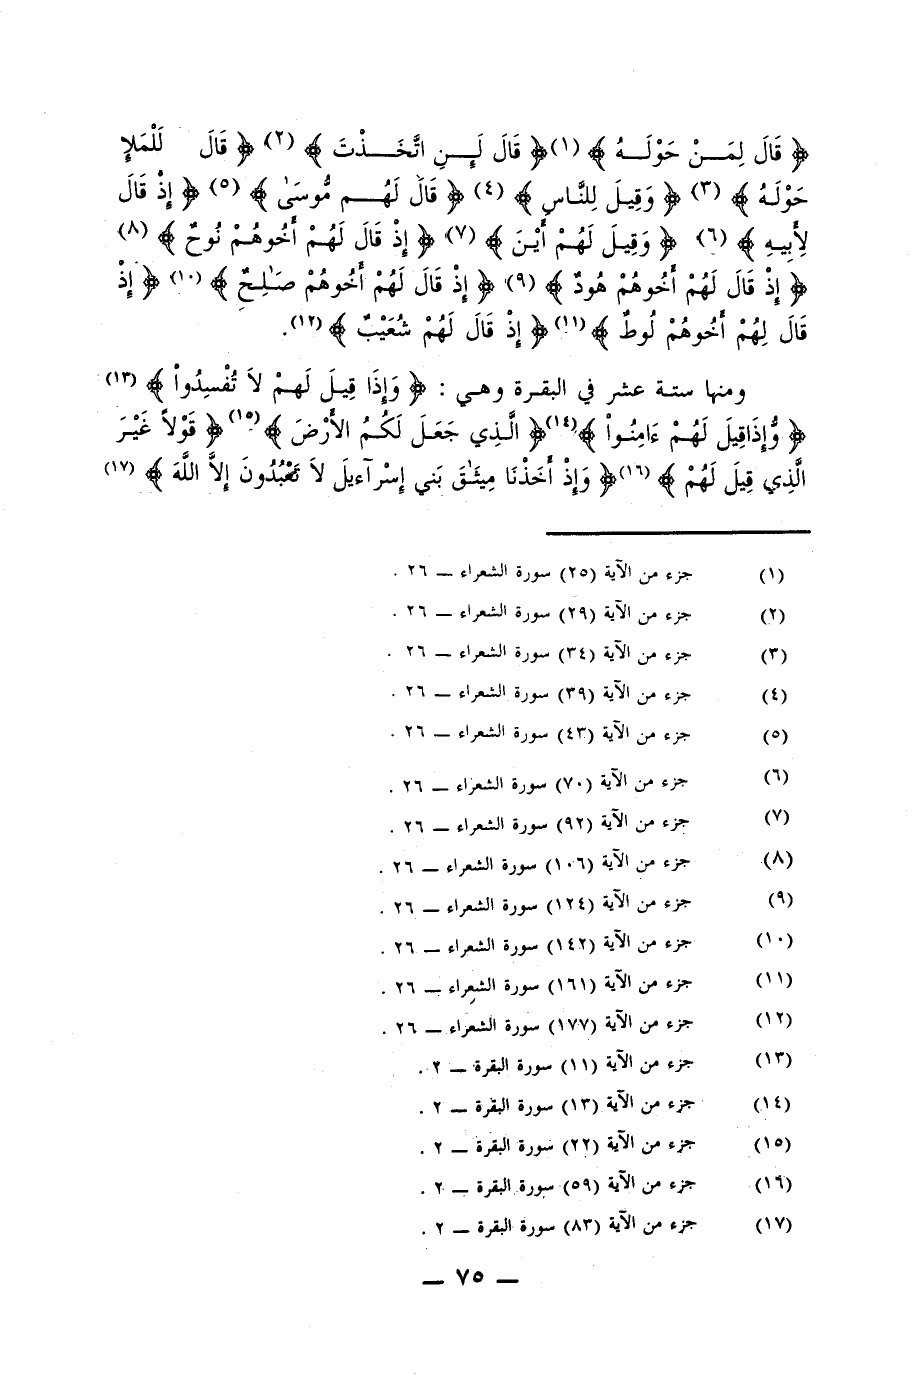 ﴿ قَالَ لِمَنْ حَوْلَهُ ﴾ (١) ﴿ قَالَ لَئِنِ اتَّخَذْتَ ﴾ (٢) ﴿ قَالَ لَلْمَلإِ
حَوْلَهُ ﴾ (٣) ﴿ وَقِيلَ لِلنَّاسِ ﴾ (٤) ﴿ قَالَ لَهُم مُّوسَىٰ ﴾ (٥) ﴿ إِذْ قَالَ
لِأَبِيهِ ﴾ (٦) ﴿ وَقِيلَ لَهُمْ أَيْنَ ﴾ (٧) ﴿ إِذْ قَالَ لَهُمْ أَخُوهُمْ نُوحٌ ﴾ (٨)
﴿ إِذْ قَالَ لَهُمْ أَخُوهُمْ هُودٌ ﴾ (٩) ﴿ إِذْ قَالَ لَهُمْ أَخُوهُمْ صَـٰلِحٌ ﴾ (١٠) ﴿ إِذْ
قَالَ لِهُمْ أَخُوهُمْ لُوطٌ ﴾ (١١) ﴿ إِذْ قَالَ لَهُمْ شُعَيْبٌ ﴾ (١٢).
ومنها ستة عشر في البقرة وهي : ﴿ وَإِذَا قِيلَ لَهمْ لاَ تُفْسِدُواْ ﴾ (١٣)
﴿ وَّإِذَاقِيلَ لَهُمْ ءَامِنُواْ ﴾ (١٤) ﴿ الَّذِي جَعَلَ لَكُمُ الأَرْضَ ﴾ (١٥) ﴿ قَوْلاً غَيْرَ
الَّذِي قِيلَ لَهُمْ ﴾ (١٦) ﴿ وَإِذْ أَخَذْنَا مِيثَـٰقَ بَني إِسْرآءِيلَ لاَ تَعْبُدُونَ إِلاَّ اللَّهَ ﴾ (١٧)
(١) جزء من الآية (٢٥) سورة الشعراء ــ ٢٦ .
(٢) جزء من الآية (٢٩) سورة الشعراء ــ ٢٦ .
(٣) جزء من الآية (٣٤) سورة الشعراء ــ ٢٦ .
(٤) جزء من الآية (٣٩) سورة الشعراء ــ ٢٦ .
(٥) جزء من الآية (٤٣) سورة الشعراء ــ ٢٦ .
(٦) جزء من الآية (٧٠) سورة الشعراء ــ ٢٦ .
(٧) جزء من الآية (٩٢) سورة الشعراء ــ ٢٦ .
(٨) جزء من الآية (١٠٦) سورة الشعراء ــ ٢٦ .
(٩) جزء من الآية (١٢٤) سورة الشعراء ــ ٢٦ .
(١٠) جزء من الآية (١٤٢) سورة الشعراء ــ ٢٦ .
(١١) جزء من الآية (١٦١) سورة الشعراء ــ ٢٦ .
(١٢) جزء من الآية (١٧٧) سورة الشعراء ــ ٢٦ .
(١٣) جزء من الآية (١١) سورة البقرة ــ ٢ .
(١٤) جزء من الآية (١٣) سورة البقرة ــ ٢ .
(١٥) جزء من الآية (٢٢) سورة البقرة ــ ٢ .
(١٦) جزء من الآية (٥٩) سورة البقرة ــ ٢ .
(١٧) جزء من الآية (٨٣) سورة البقرة ــ ٢ .
ــ ٧٥ ــ